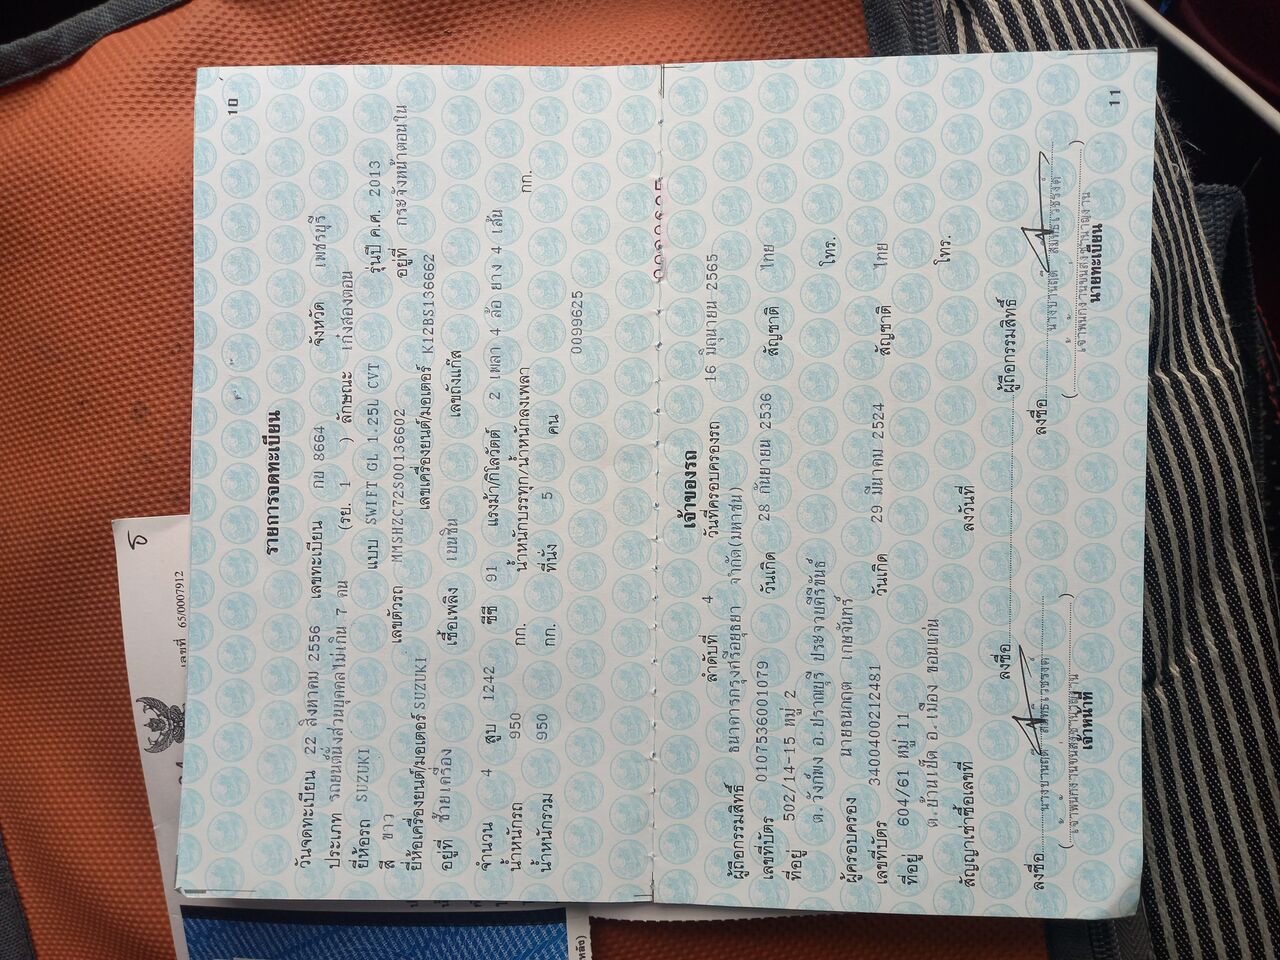 10
รายการจดทะเบียน
วันจดทะเบียน 22 สิงหาคม 2556 เลขทะเบียน กบ 8664 จังหวัด เพชรบุรี
ประเภท รถยนต์นั่งส่วนบุคคลไม่เกิน 7 คน (รย. 1 ) ลักษณะ เก๋งสองตอน
ยี่ห้อรถ SUZUKI แบบ SWIFT GL 1.25L CVT รุ่นปี ค.ศ. 2013
สี ขาว เลขตัวรถ MMSHZC72S00136602 อยู่ที่ กระจังหน้าตอนใน
ยี่ห้อเครื่องยนต์/มอเตอร์ SUZUKI เลขเครื่องยนต์/มอเตอร์ K12BS136662
อยู่ที่ ซ้ายเครื่อง เชื้อเพลิง เบนซิน เลขถังแก๊ส
จำนวน 4 สูบ 1242 ซีซี 91 แรงม้า/กิโลวัตต์ 2 เพลา 4 ล้อ ยาง 4 เส้น
น้ำหนักรถ 950 กก. น้ำหนักบรรทุก/น้ำหนักลงเพลา กก.
น้ำหนักรวม 950 กก. ที่นั่ง 5 คน
0099625
11
เจ้าของรถ
ลำดับที่ 4 วันที่ครอบครองรถ 16 มิถุนายน 2565
ผู้ถือกรรมสิทธิ์ ธนาคารกรุงศรีอยุธยา จำกัด(มหาชน)
เลขที่บัตร 0107536001079 วันเกิด 28 กันยายน 2536 สัญชาติ ไทย
ที่อยู่ 502/14-15 หมู่ 2
ต.วังก์พง อ.ปราณบุรี ประจวบคีรีขันธ์ โทร.
ผู้ครอบครอง นายธนกฤต เกษจันทร์
เลขที่บัตร 3404000212481 วันเกิด 29 มีนาคม 2524 สัญชาติ ไทย
ที่อยู่ 604/61 หมู่ 11
ต.บ้านเป็ด อ.เมือง ขอนแก่น โทร.
สัญญาเช่าซื้อเลขที่ ลงวันที่
ลงชื่อ ผู้ถือกรรมสิทธิ์
ลงชื่อ ลงชื่อ
(เจ้าพนักงานขนส่งชำนาญงาน) (เจ้าพนักงานขนส่งชำนาญงาน)
เจ้าหน้าที่ นายทะเบียน
เลขที่ 65/0007912
หลัง)